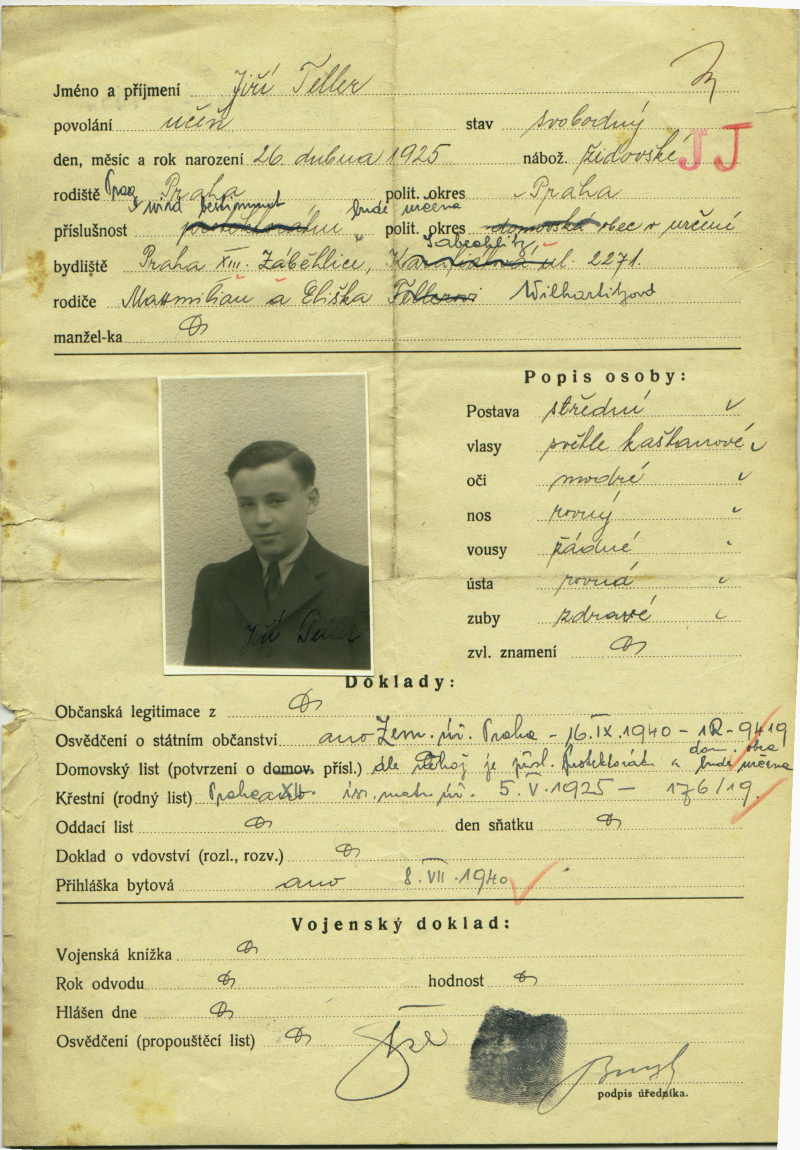 Jméno a příjmení Jiří Teller
povolání učeň stav svobodný
den, měsíc a rok narození 26. dubna 1925 nábož. židovské J J
rodiště Praha polit. okres Praha
wird bestimmt bude určena
příslušnost polit. okres domovská obec v určení
bydliště Praha XIII. Záběhlice, ul. 2271.
rodiče Maxmilian a Eliška Tellerovi
manžel-ka
Popis osoby:
Postava střední
vlasy světle kaštanové
oči modré
nos rovný
vousy žádné
ústa rovná
zuby zdravé
zvl. znamení
Jiří Teller
Doklady:
Občanská legitimace z
Osvědčení o státním občanství ano Zem. úř. Praha - 16.IX.1940 - 1R-9419
Domovský list (potvrzení o domov. přísl.) dle je přísl. Protektorát a dom. bude určena
Křestní (rodný list) Praha isr. matr. úř. 5.V.1925 - 176/19.
Oddací list den sňatku
Doklad o vdovství (rozl., rozv.)
Přihláška bytová ano 8.VII.1940
Vojenský doklad:
Vojenská knížka
Rok odvodu hodnost
Hlášen dne
Osvědčení (propouštěcí list)
podpis úředníka.